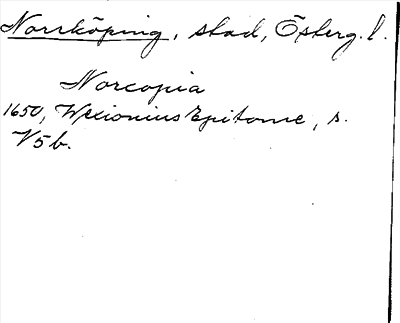 Norrköping, stad, Österg. l.
Norcopia
1650, Wexionius Epitome, s.
V5b.